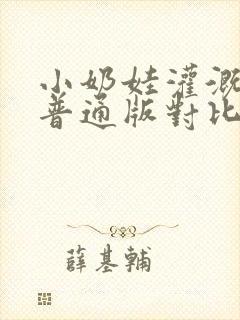 小奶娃灌溉
普通版對比
薛基輔